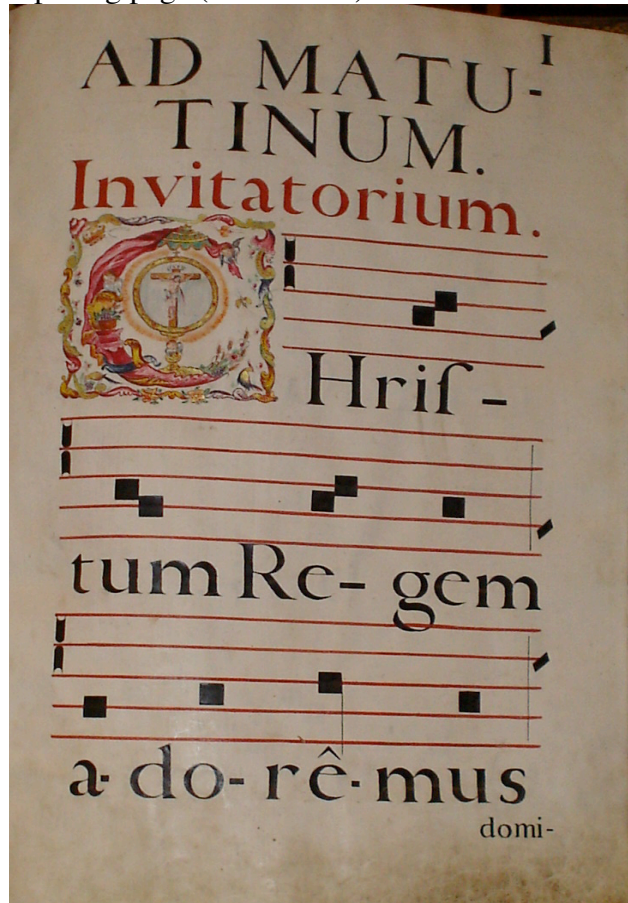 I
AD MATU-
TINUM.
Invitatorium.
CHriſ-
tum Re- gem
a- do- rê- mus
domi-